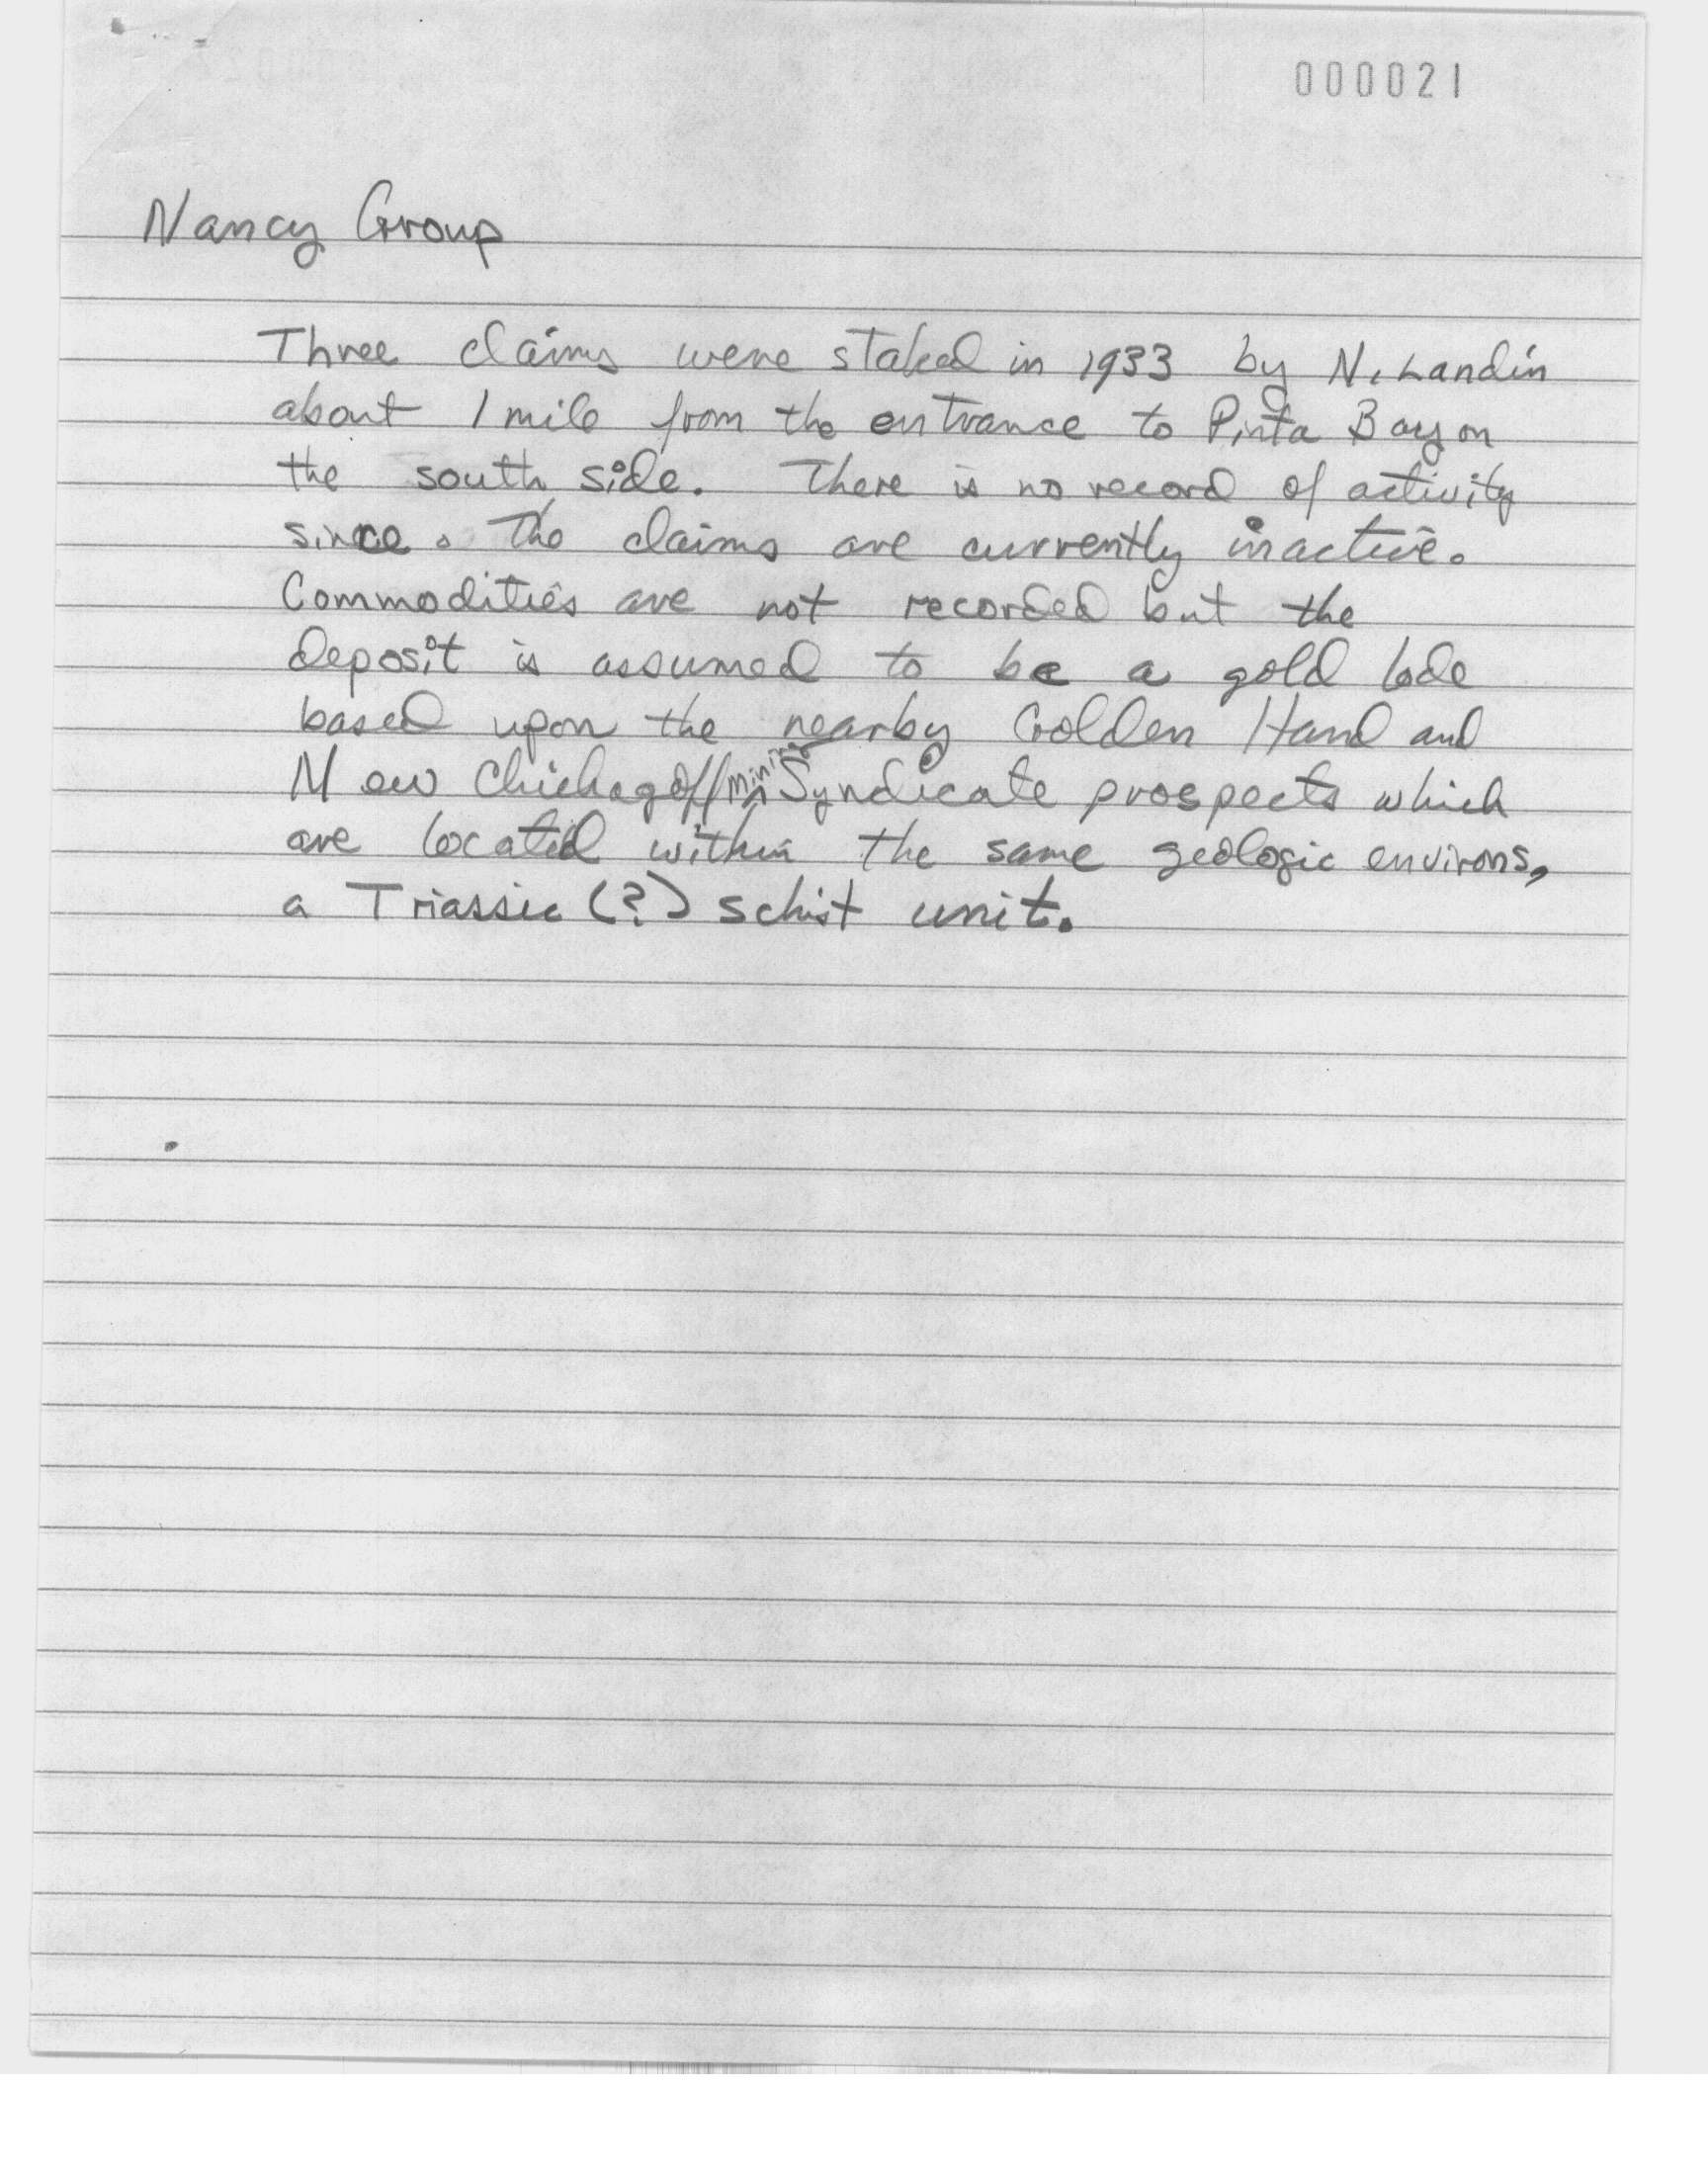 000021
Nancy Group
Three claims were staked in 1933 by N. Landin
about 1 mile from the entrance to Pinta Bay on
the south side. There is no record of activity
since. The claims are currently inactive.
Commodities are not recorded but the
deposit is assumed to be a gold lode
based upon the nearby Golden Hand and
New Chichagoff Mining Syndicate prospects which
are located within the same geologic environs,
a Triassic (?) schist unit.